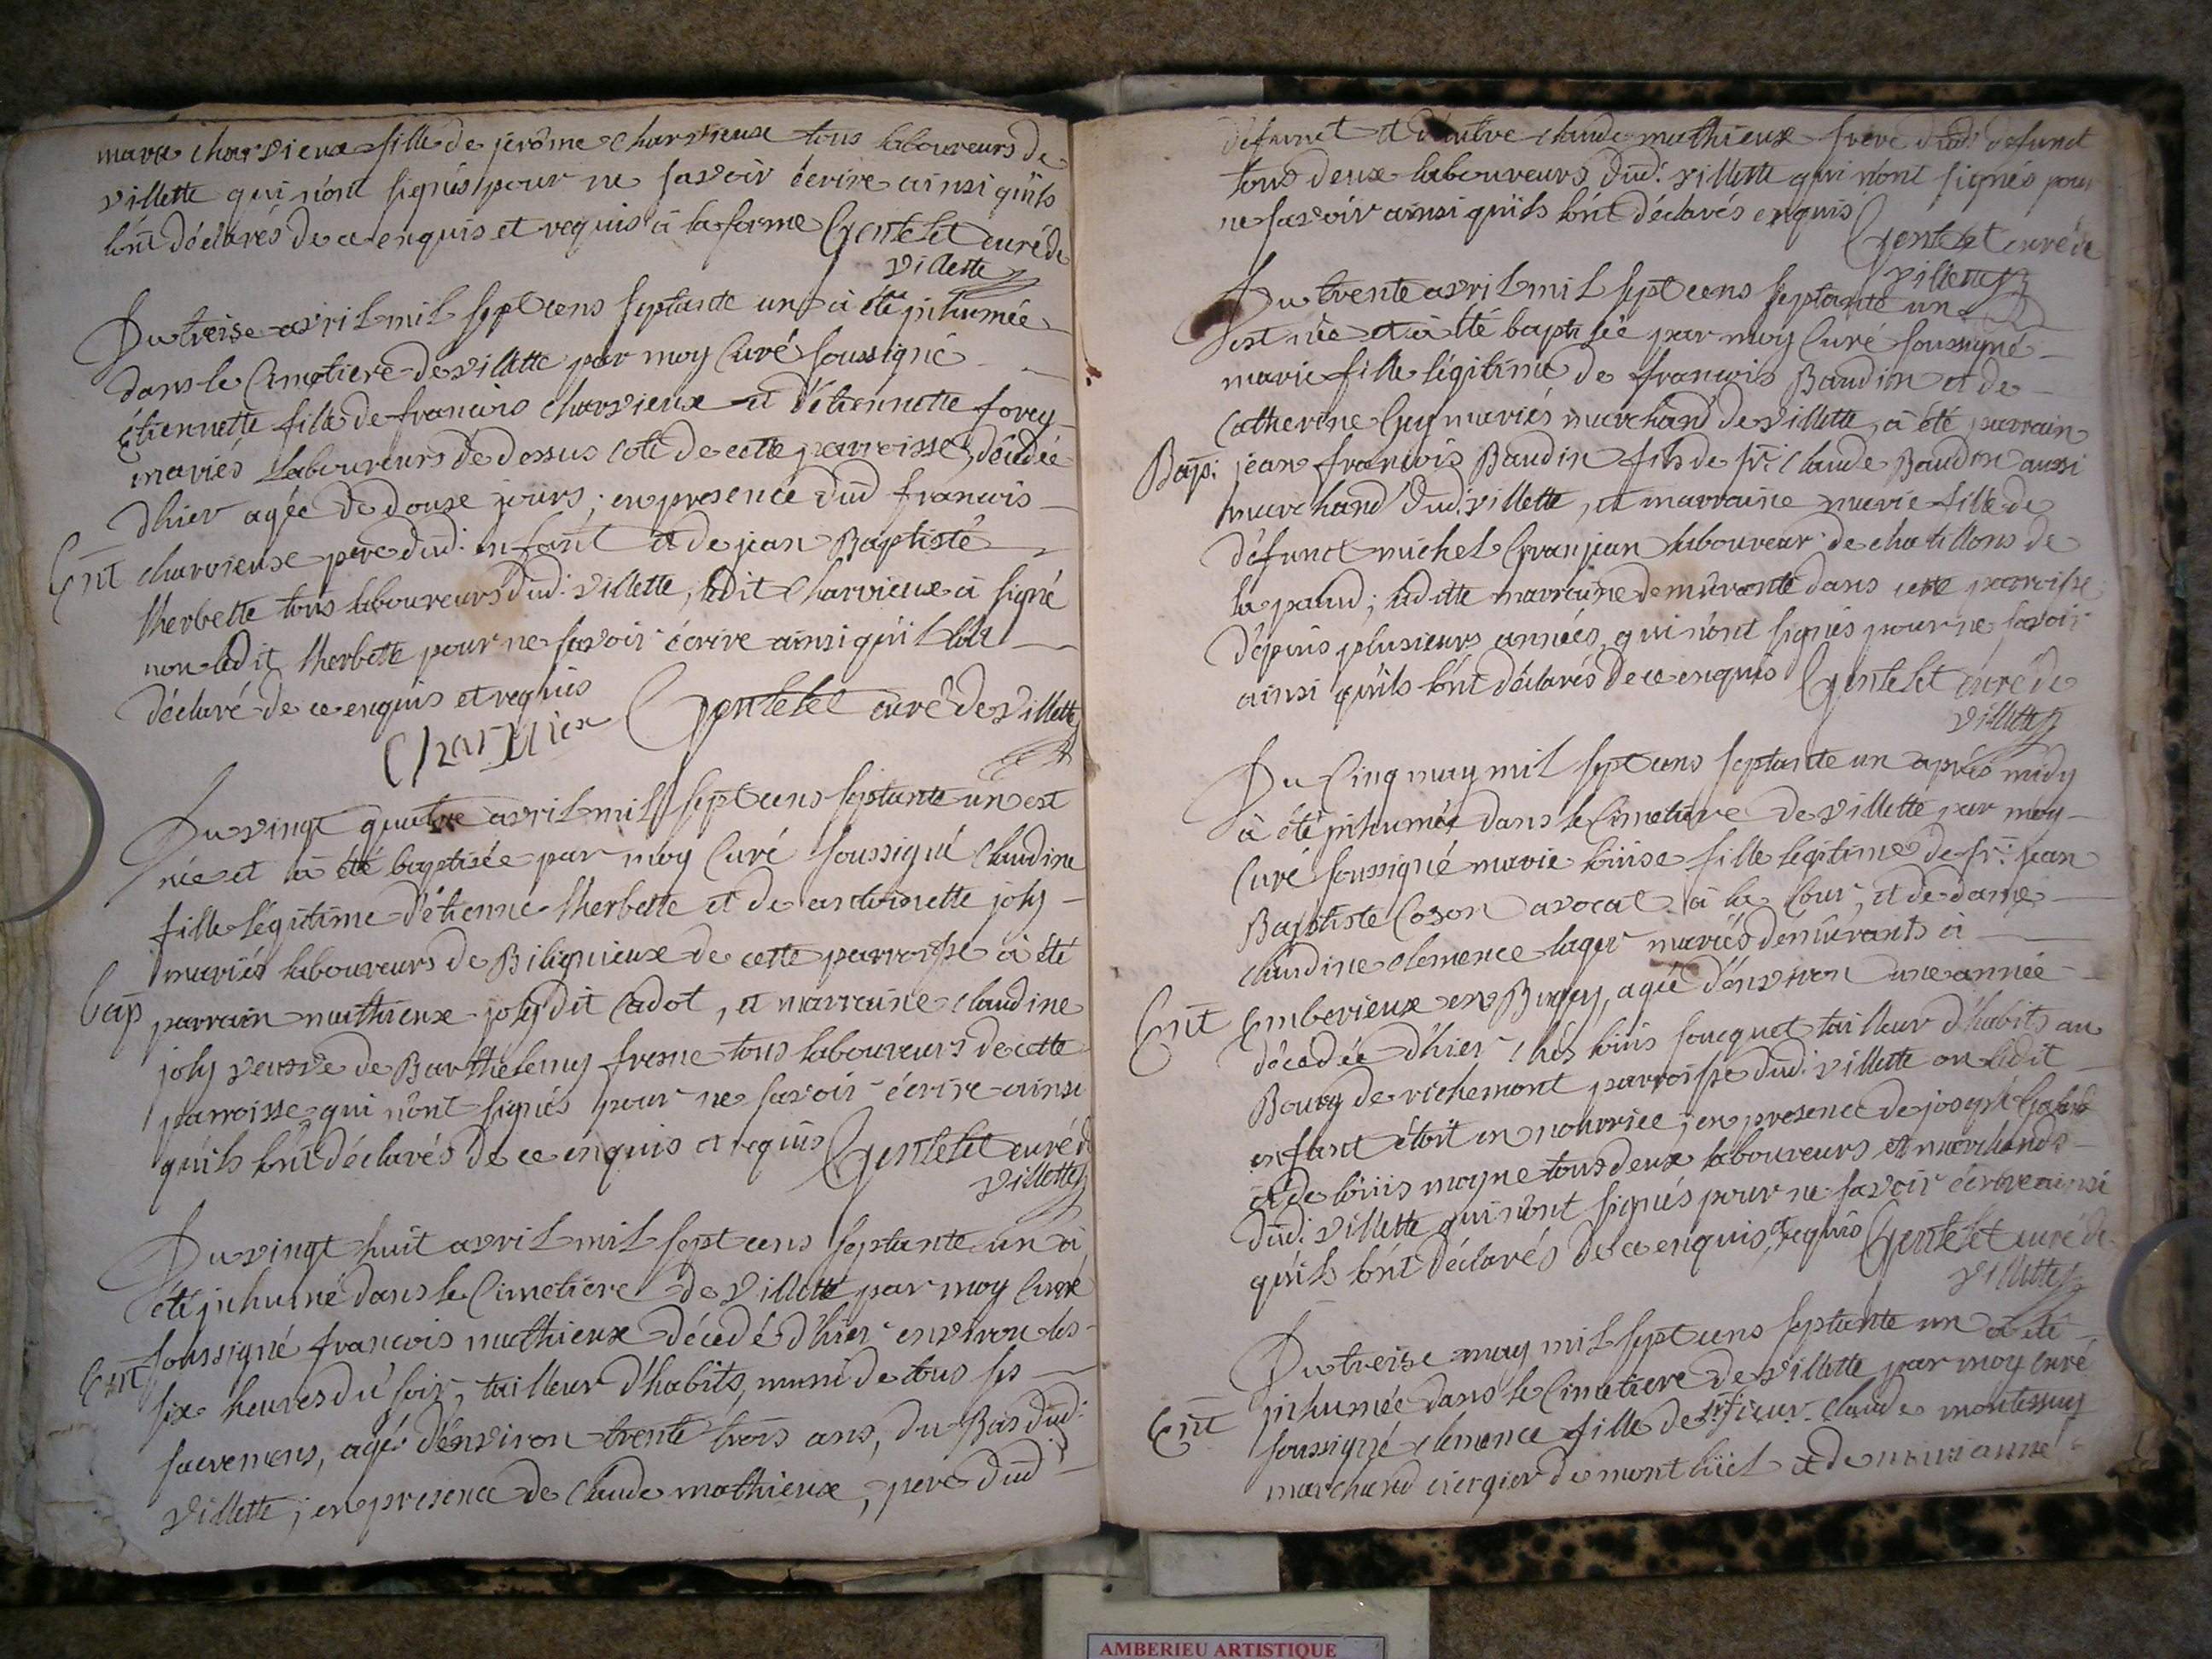 marie charvieux fille de jerôme charvieux tous laboureurs de
villette qui n'ont signés pour ne savoir écrire ainsi qu'ils
l'ont déclarés de ce enquis et requis à la forme Gentelet curé de
villette
Du treise avril mil sept cens septante un à été jnhumée
dans le Cimetiere de villette par moy Curé soussigné
Etiennette fille de francois charvieux et d'étiennette forey
mariés Laboureurs de dessus cote de cette parroisse, décédée
d'hier agée de douse jours; en presence dud francois
Ent charvieux pere dud. enfant et de jean Baptiste
therbette tous laboureurs dud. villette, ledit Charvieux à signé
non ledit therbette pour ne savoir écrire ainsi qu'il l'at
déclaré de ce enquis et requis
Charviex Gentelet curé de villette
Du vingt quatre avril mil sept cens septante un est
née et à été baptisée par moy Curé soussigné Claudine
fille légitime d'étienne therbette et de antoinette joly
mariés laboureurs de Bilignieux de cette parroisse à été
Bap parrain mathieux joly dit Cadot, et marraine claudine
joly veusve de Barthélemy fresne tous laboureurs de cette
parroisse qui n'ont signés pour ne savoir écrire ainsi
qu'ils l'ont déclarés de ce enquis et requis Gentelet curé de
villette
Du vingt huit avril mil sept cens septante un à
été jnhumé dans le Cimetiere de villette par moy Curé
Ent soussigné francois mathieux décedé d'hier environ les
six heures du soir, tailleur d'habits, muni de tous ses
sacremens, agé d'environ trente trois ans, du Bas dud.
villette; en presence de claude mathieux, pere dud
défunct et d'autre claude mathieux frere dud. défunct
tous deux laboureurs dud. villette qui n'ont signés pour
ne savoir ainsi qu'ils l'ont déclarés enquis
Gentelet curé de
villette
Du trente avril mil sept cens septante un
est née et à été baptisée par moy Curé soussigné
marie fille légitime de francois Baudin et de
Catherine Guy mariés marchand de villette, à été parrain
Bap. jean francois Baudin fils de sr. Claude Baudin aussi
marchand dud. villette, et marraine marie fille de
défunct michel Granjean laboureur de chatillons de
la palud; laditte marraine demeurante dans cette parroisse
dépuis plusieurs années, qui n'ont signés pour ne savoir
ainsi qu'ils l'ont déclarés de ce enquis Gentelet curé de
villette
Du Cinq may mil sept cens septante un après midy
à été jnhumée dans le Cimetiere de villette par moy
Curé soussigné marie loüise fille legitime de sr. jean
Baptiste Cozon avocat à la Cour, et de dame
claudine clemence lager mariés démeurants à
Ent Emberieux en Bugey, agée d'environ une année
décedée d'hier chés loüis foucquet tailleur d'habits au
Bourg de richemont parroisse dud. villette ou ledit
enfant étoit en nourrice; en presence de joseph
et de loüis moyne tous deux laboureurs et marchands
dud. villette qui n'ont signés pour ne savoir écrire ainsi
qu'ils l'ont déclarés de ce enquis et requis Gentelet curé de
villette
Du treise may mil sept cens septante un à été
jnhumée dans le Cimetiere de villette par moy curé
Ent soussigné clemence fille de sieur claude montessuy
marchand ciergier de mont lüel et de marianne
AMBERIEU ARTISTIQUE